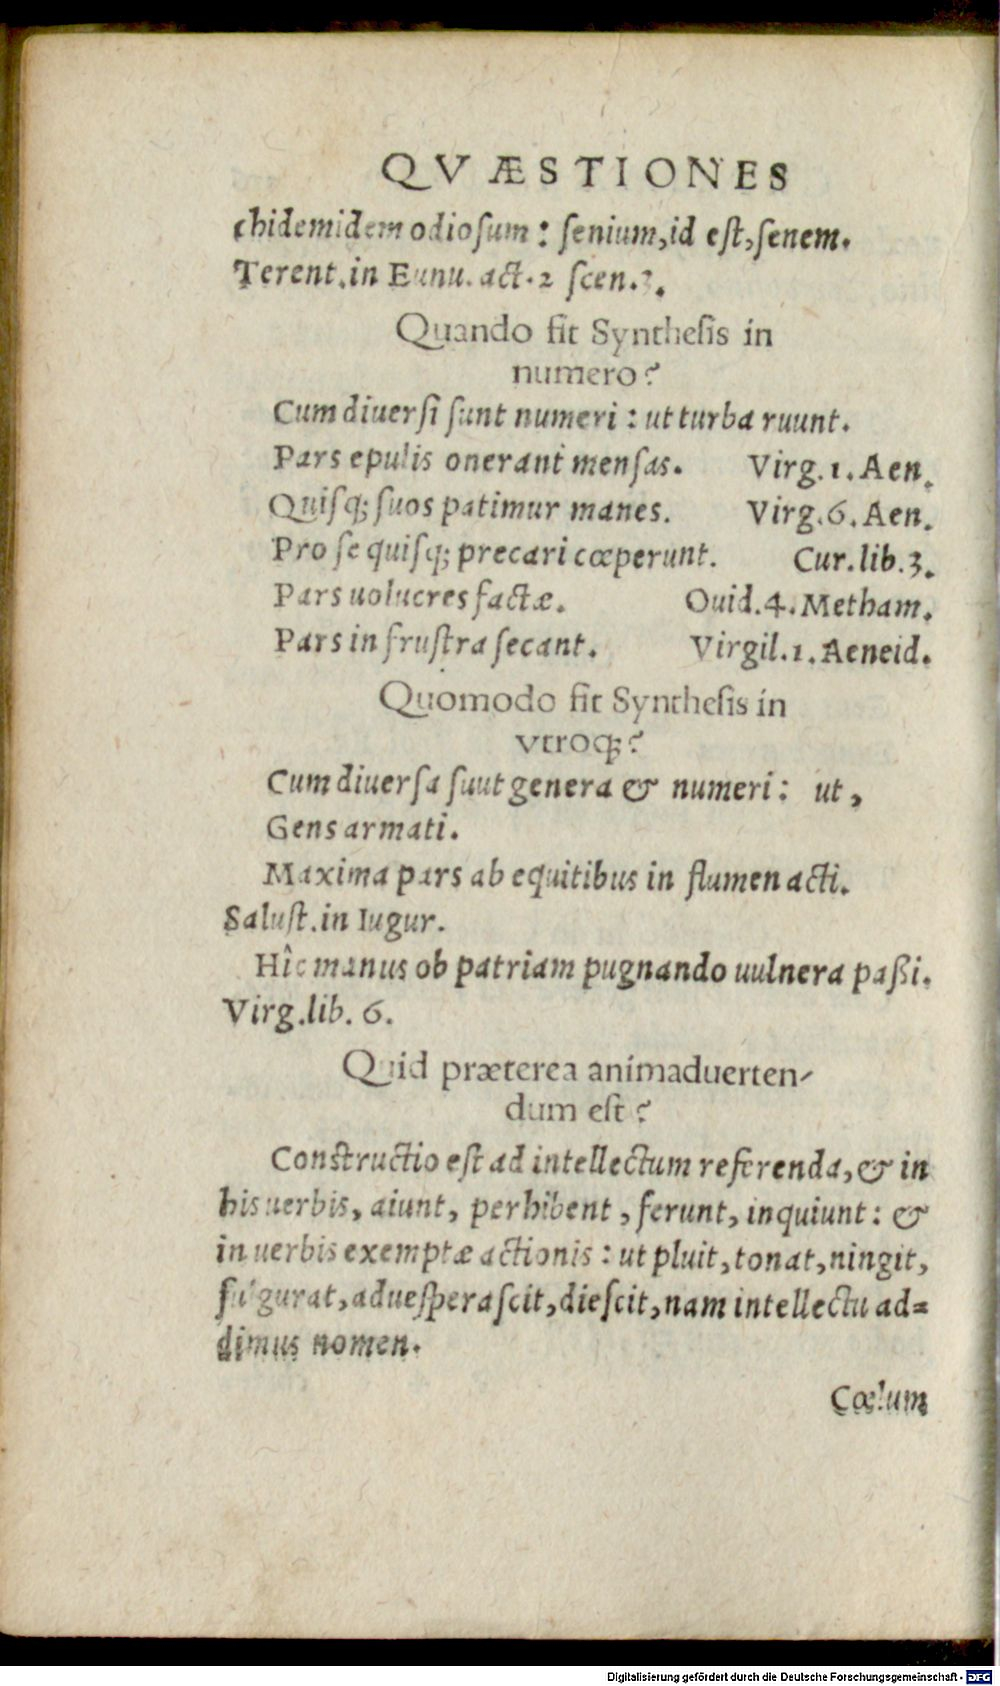 QVÆSTIONES
chidemidem odioſum : ſenium, id eſt, ſenem.
Terent. in Eunu. act. 2 ſcen. 3.
Quando fit Syntheſis in
numero?
Cum diuerſi ſunt numeri : ut turba ruunt.
Pars epulis onerant menſas. Virg. 1. Aen.
Quiſq; ſuos patimur manes. Virg. 6. Aen.
Pro ſe quiſq; precari cœperunt. Cur. lib. 3.
Pars uolucres factæ. Ouid. 4. Metham.
Pars in fruſtra ſecant. Virgil. 1. Aeneid.
Quomodo fit Syntheſis in
vtroq;?
Cum diuerſa ſuut genera & numeri : ut,
Gens armati.
Maxima pars ab equitibus in flumen acti.
Saluſt. in Iugur.
Hîc manus ob patriam pugnando uulnera paßi.
Virg. lib. 6.
Quid præterea animaduerten-
dum eſt?
Constructio eſt ad intellectum referenda, & in
his uerbis, aiunt, perhibent, ferunt, inquiunt : &
in uerbis exemptæ actionis : ut pluit, tonat, ningit,
fulgurat, adueſperaſcit, dieſcit, nam intellectu ad=
dimus nomen.
Cœlum
Digitalisierung gefördert durch die Deutsche Forschungsgemeinschaft - DFG